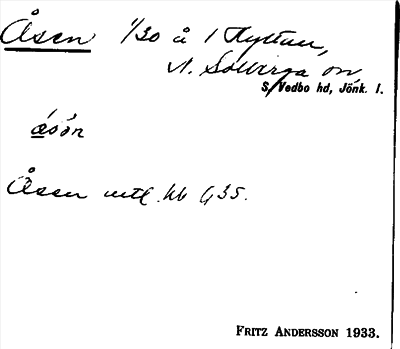 Åsen 1/30 å 1 Hyttan,
N. Solberga sn
S. Vedbo hd, Jönk. l.
Åsen mtl. kb 635.
FRITZ ANDERSSON 1933.